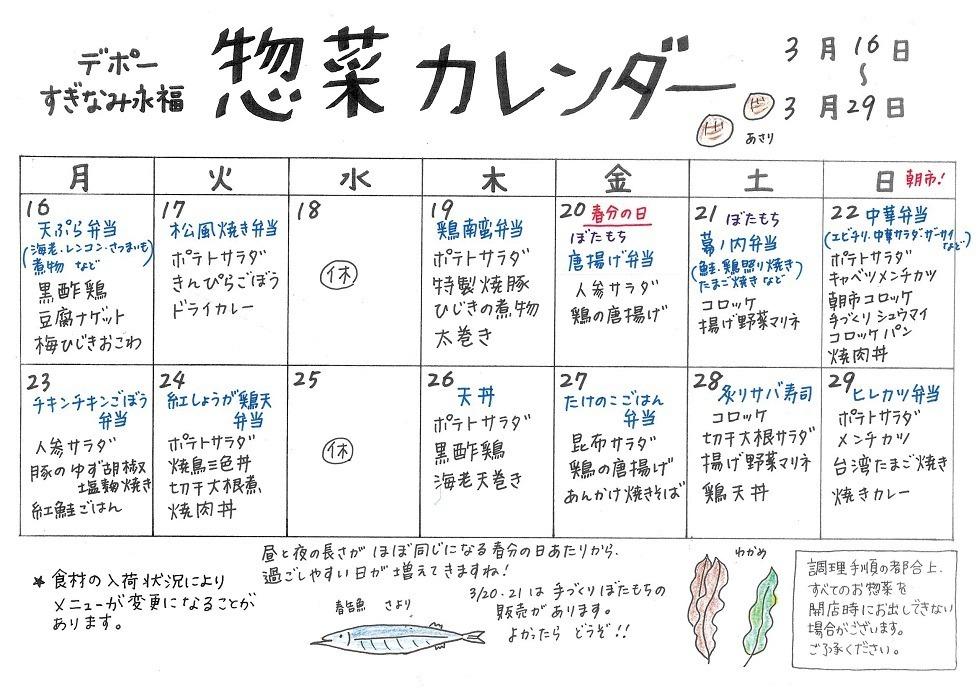 デポー
すぎなみ永福
惣菜カレンダー
3月16日
〜
3月29日
あさり
月 火 水 木 金 土 日 朝市!
16
天ぷら弁当
(海老・レンコン・さつまいも
煮物 など)
黒酢鶏
豆腐ナゲット
梅ひじきおこわ
17
松風焼き弁当
ポテトサラダ
きんぴらごぼう
ドライカレー
18
休
19
鶏南蛮弁当
ポテトサラダ
特製焼豚
ひじきの煮物
太巻き
20 春分の日
ぼたもち
唐揚げ弁当
人参サラダ
鶏の唐揚げ
21 ぼたもち
幕ノ内弁当
(鮭・鶏照り焼き
たまご焼き など)
コロッケ
揚げ野菜マリネ
22 中華弁当
(エビチリ・中華サラダ・ザーサイ
など)
ポテトサラダ
キャベツメンチカツ
朝市コロッケ
手づくりシュウマイ
コロッケパン
焼肉丼
23
チキンチキンごぼう
弁当
人参サラダ
豚のゆず胡椒
塩麹焼き
紅鮭ごはん
24
紅しょうが鶏天
弁当
ポテトサラダ
焼鳥三色丼
切干大根煮
焼肉丼
25
休
26
天丼
ポテトサラダ
黒酢鶏
海老天巻き
27
たけのこごはん
弁当
昆布サラダ
鶏の唐揚げ
あんかけ焼きそば
28
炙りサバ寿司
コロッケ
切干大根サラダ
揚げ野菜マリネ
鶏天丼
29
ヒレカツ弁当
ポテトサラダ
メンチカツ
台湾たまご焼き
焼きカレー
★食材の入荷状況により
メニューが変更になることが
あります。
昼と夜の長さが ほぼ同じになる春分の日あたりから、
過ごしやすい日が増えてきますね!
春告魚 さより
3/20・21は手づくりぼたもちの
販売があります。
よかったら どうぞ!!
わかめ
調理手順の都合上、
すべてのお惣菜を
開店時にお出しできない
場合がございます。
ご了承ください。